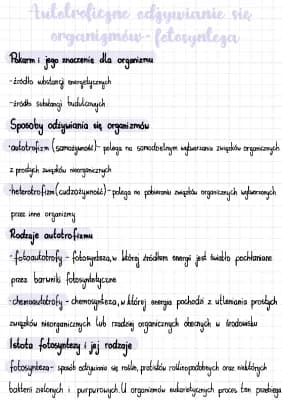 Autotroficzne odżywianie się
organizmów - fotosynteza
Pokarm i jego znaczenie dla organizmu
-źródło substancji energetycznych
-źródło substancji budulcowych
Sposoby odżywiania się organizmów
·autotrofizm (samożywność) - polega na samodzielnym wytwarzaniu związków organicznych
z prostych związków nieorganicznych
·heterotrofizm (cudzożywność) - polega na pobieraniu związków organicznych wytworzonych
przez inne organizmy
Rodzaje autotrofizmu
·fotoautotrofy - fotosynteza, w której źródłem energii jest światło pochłaniane
przez barwniki fotosyntetyczne
·chemoautotrofy - chemosynteza, w której energia pochodzi z utleniania prostych
związków nieorganicznych lub rzadziej organicznych obecnych w środowisku
Istota fotosyntezy i jej rodzaje
fotosynteza - sposób odżywiania się roślin, protistów roślinopodobnych oraz niektórych
bakterii zielonych i purpurowych. U organizmów eukariotycznych proces ten przebiega